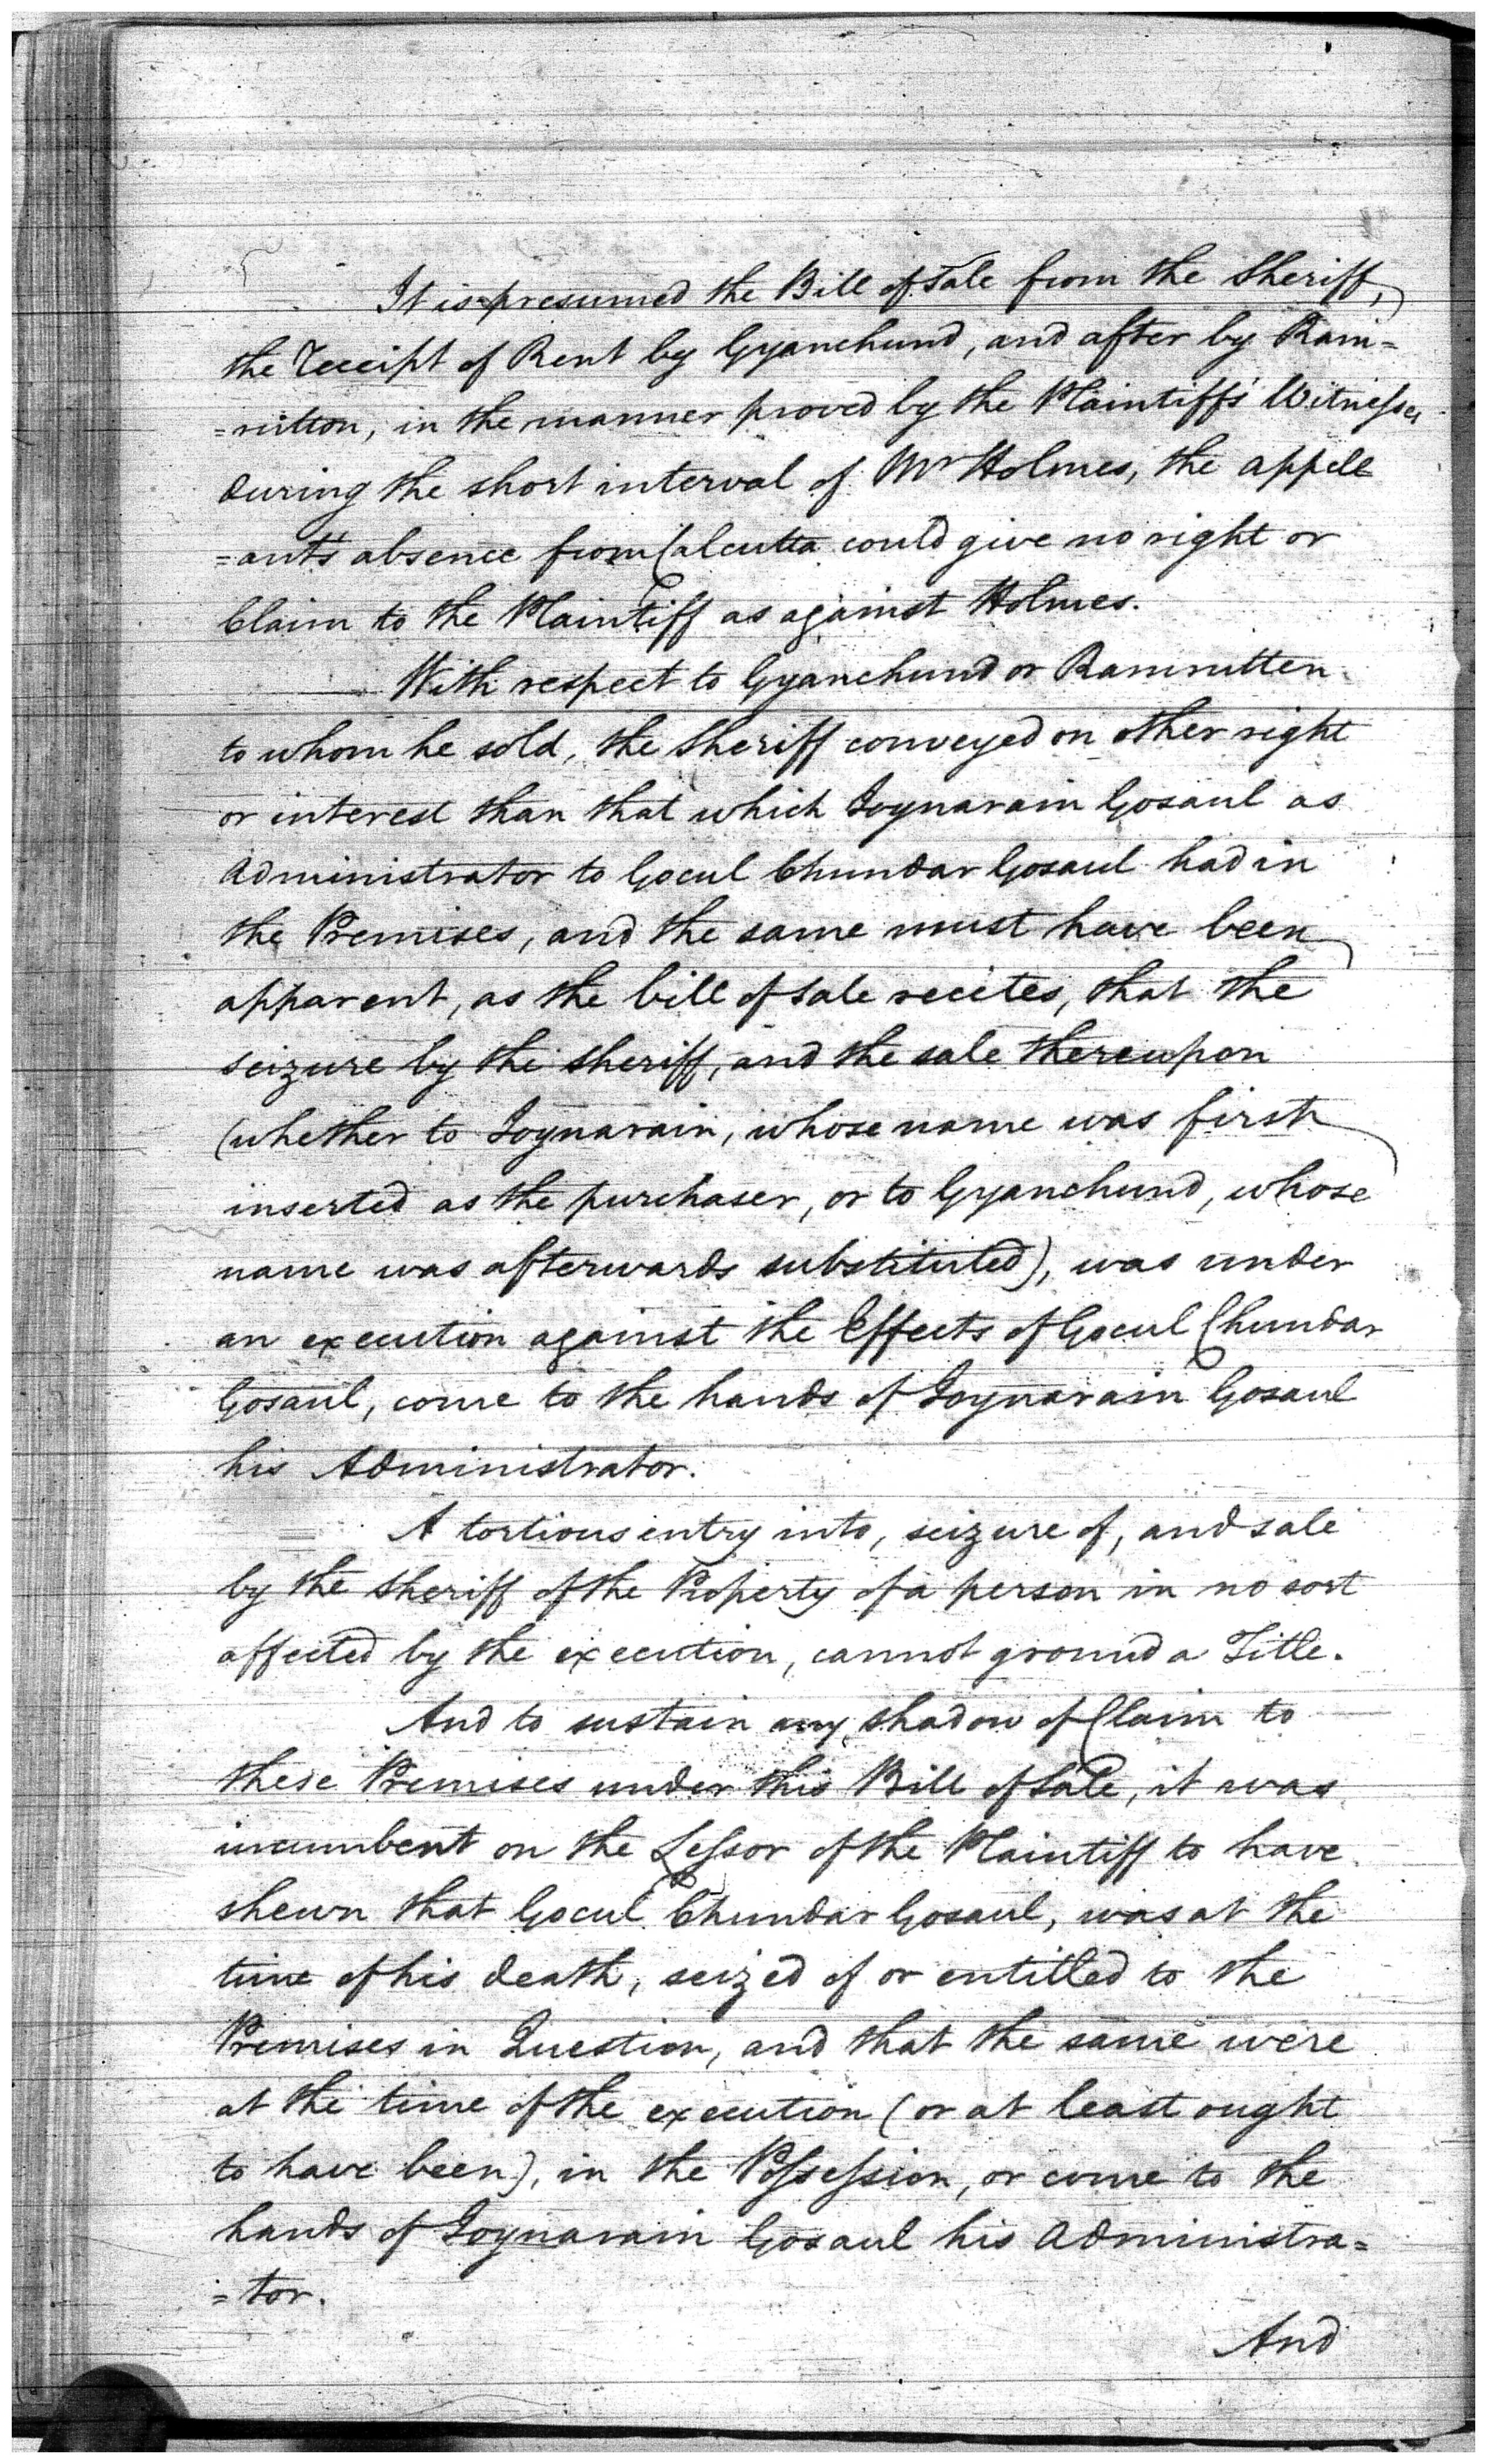 It is presumed the Bill of Sale from the Sheriff,
the Receipt of Rent by Gyanchund, and after by Ram=
=rutton, in the manner proved by the Plaintiffs' Witnesses
during the short interval of Mr Holmes, the appell
=ant's absence from Calcutta could give no right or
Claim to the Plaintiff as against Holmes.
With respect to Gyanchund or Ramrutten
to whom he sold, the Sheriff conveyed on other right
or interest than that which Joynarain Gosaul as
Administrator to Gocul Chundar Gosaul had in
the Premises, and the same must have been
apparent, as the bill of sale recites, that the
seizure by the Sheriff, and the sale thereupon
(whether to Joynarain, whose name was first
inserted as the purchaser, or to Gyanchund, whose
name was afterwards substituted), was under
an execution against the Effects of Gocul Chundar
Gosaul, come to the hands of Joynarain Gosaul
his Administrator.
A tortious entry into, seizure of, and sale
by the Sheriff of the Property of a person in no sort
affected by the execution, cannot ground a Title.
And to sustain any shadow of Claim to
these Premises under this Bill of Sale, it was
incumbent on the Lessor of the Plaintiff to have
shewn that Gocul Chundar Gosaul, was at the
time of his death, seized of or entitled to the
Premises in Question, and that the same were
at the time of the execution (or at least ought
to have been), in the Possession, or come to the
hands of Joynarain Gosaul his Administra=
=tor.
And